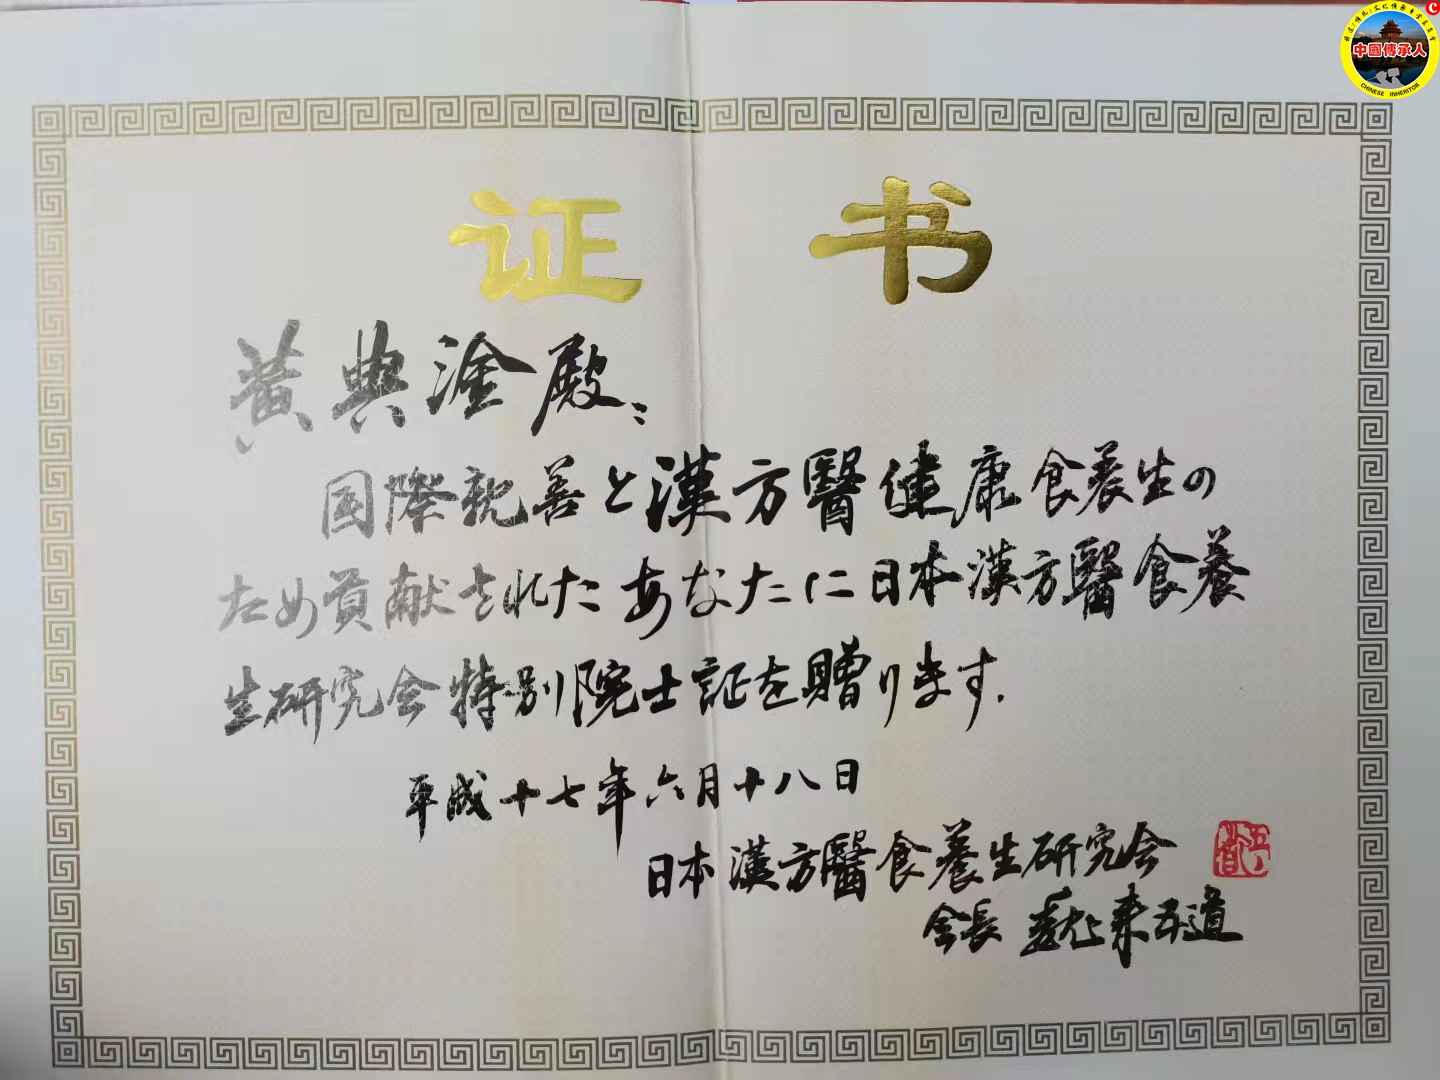 中國傳承人
CHINESE INHERITOR
证书
黄典淦殿:
国際親善と漢方醫健康食养生の
ため貢献されたあなたに日本漢方醫食養
生研究会特別院士証を贈ります.
平成十七年六月十八日
日本漢方醫食養生研究会
会長 五道